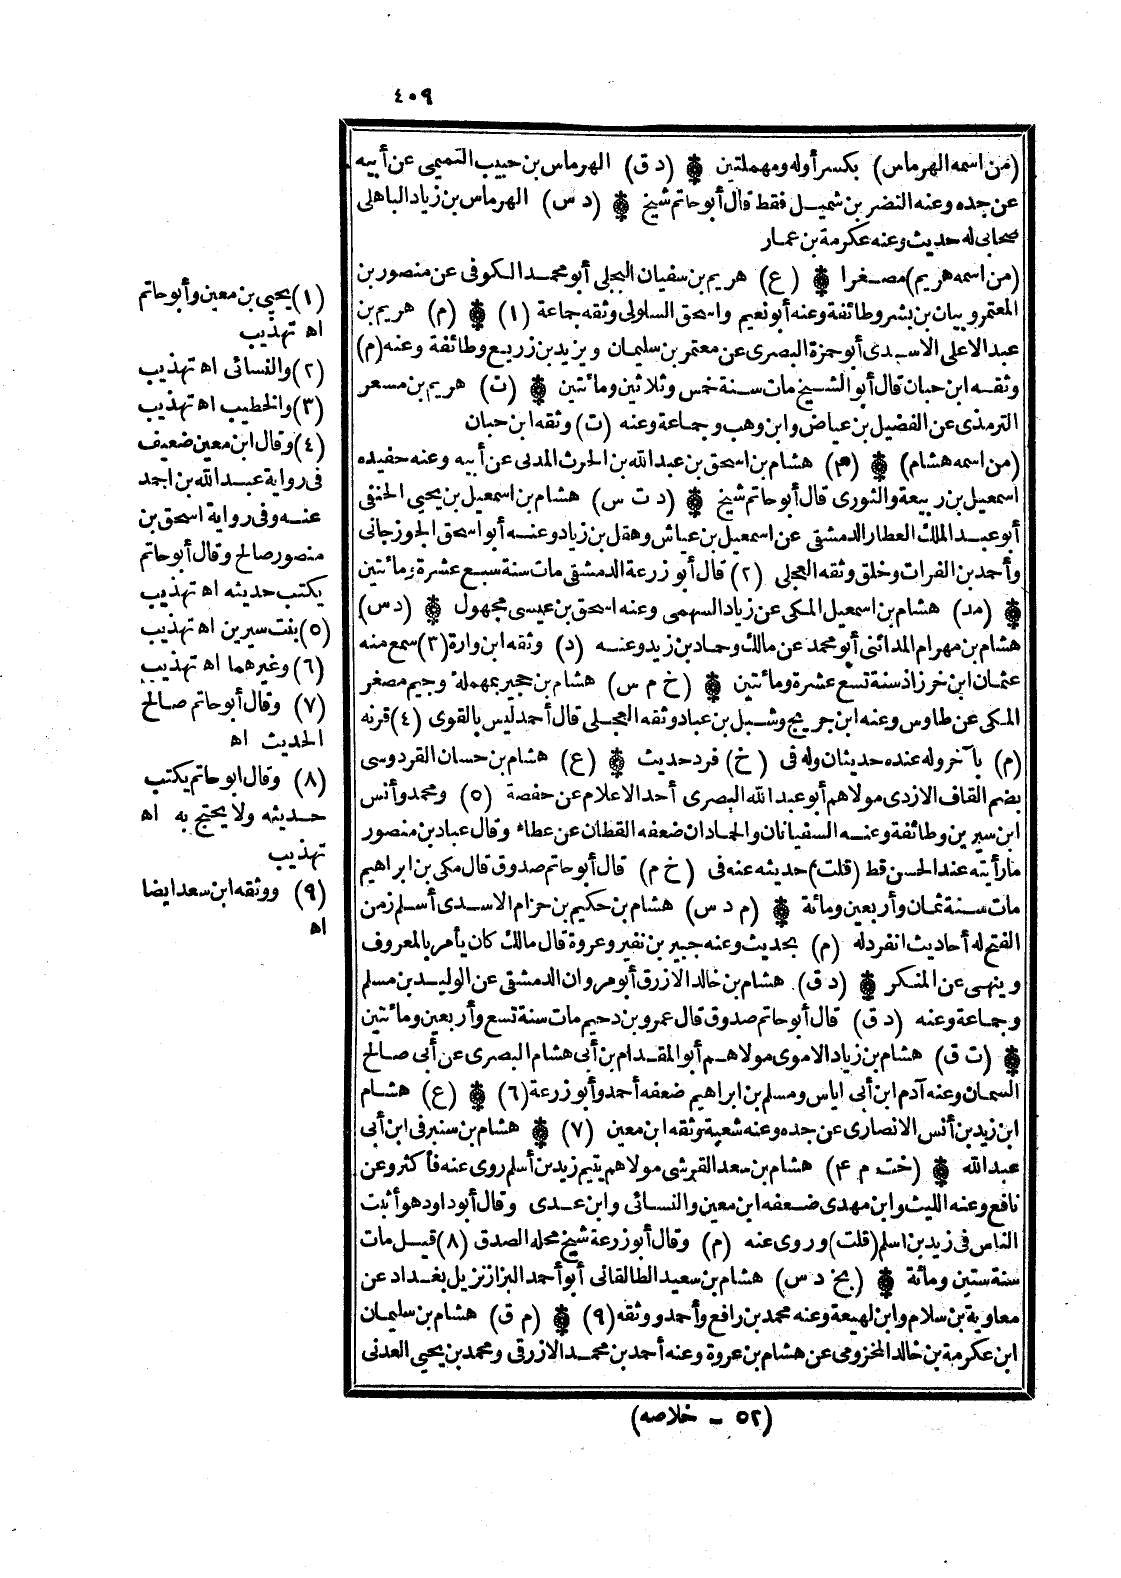 ٤٠٩
(من اسمه الهرماس) بكسر أوله ومهملتين ۞ (د ق) الهرماس بن حبيب التميمى عن أبيه
عن جده وعنه النضر بن شميل فقط قال أبو حاتم شيخ ۞ (د س) الهرماس بن زياد الباهلى
صحابى له حديث وعنه عكرمة بن عمار
(من اسمه هريم) مصغرا ۞ (ع) هريم بن سفيان البجلى أبو محمد الكوفى عن منصور بن
المعتمر وبيان بن بشر وطائفة وعنه أبو نعيم واسحق السلولى وثقه جماعة (١) ۞ (م) هريم بن
عبد الاعلى الاسدى أبو حمزة البصرى عن معتمر بن سليمان ويزيد بن زريع وطائفة وعنه (م)
وثقه ابن حبان قال أبو الشيخ مات سنة خمس وثلاثين ومائتين ۞ (ت) هريم بن مسعر
الترمذى عن الفضيل بن عياض وابن وهب وجماعة وعنه (ت) وثقه ابن حبان
(من اسمه هشام) ۞ (٤) هشام بن اسحق بن عبد الله بن الحرث المدنى عن أبيه وعنه حفيده
اسمعيل بن ربيعة والثورى قال أبو حاتم شيخ ۞ (د ت س) هشام بن اسمعيل بن يحيى الحنفى
أبو عبد الملك العطار الدمشقى عن اسمعيل بن عياش وهقل بن زياد وعنه أبو اسحق الجوزجانى
وأحمد بن الفرات وخلق وثقه العجلى (٢) قال أبو زرعة الدمشقى مات سنة سبع عشرة ومائتين
۞ (مد) هشام بن اسمعيل المكى عن زياد السهمى وعنه اسحق بن عيسى مجهول ۞ (د س)
هشام بن مهرام المدائنى أبو محمد عن مالك وحماد بن زيد وعنه (د) وثقه ابن وارة (٣) سمع منه
عثمان ابن خرزاذ سنة تسع عشرة ومائتين ۞ (خ م س) هشام بن حجير بمهملة وجيم مصغر
المكى عن طاوس وعنه ابن جريج وشبل بن عباد وثقه العجلى قال أحمد ليس بالقوى (٤) قرنه
(م) بآخر وله عنده حديثان وله فى (خ) فرد حديث ۞ (ع) هشام بن حسان القردوسى
بضم القاف الازدى مولاهم أبو عبد الله البصرى أحد الاعلام عن حفصة (٥) ومحمد وأنس
ابن سيرين وطائفة وعنه السفيانان والحمادان ضعفه القطان عن عطاء وقال عباد بن منصور
مارأيته عند الحسن قط (قلت) حديثه عنه فى (خ م) قال أبو حاتم صدوق قال مكى بن ابراهيم
مات سنة ثمان وأربعين ومائة ۞ (م د س) هشام بن حكيم بن حزام الاسدى أسلم زمن
الفتح له أحاديث انفرد له (م) بحديث وعنه جبير بن نفير وعروة قال مالك كان يأمر بالمعروف
وينهى عن المنكر ۞ (د ق) هشام بن خالد الازرق أبو مروان الدمشقى عن الوليد بن مسلم
وجماعة وعنه (د ق) قال أبو حاتم صدوق قال عمرو بن دحيم مات سنة تسع وأربعين ومائتين
۞ (ت ق) هشام بن زياد الاموى مولاهم أبو المقدام بن أبى هشام البصرى عن أبى صالح
السمان وعنه آدم ابن أبى اياس ومسلم بن ابراهيم ضعفه أحمد وأبو زرعة (٦) ۞ (ع) هشام
ابن زيد بن أنس الانصارى عن جده وعنه شعبة وثقه ابن معين (٧) ۞ هشام بن سنبر فى ابن أبى
عبد الله ۞ (خت م ٤) هشام بن سعد القرشى مولاهم يتيم زيد بن أسلم روى عنه فأكثر وعن
نافع وعنه الليث وابن مهدى ضعفه ابن معين والنسائى وابن عدى وقال أبو داود هو أثبت
الناس فى زيد بن اسلم (قلت) وروى عنه (م) وقال أبو زرعة شيخ محله الصدق (٨) قيل مات
سنة ستين ومائة ۞ (بخ د س) هشام بن سعيد الطالقانى أبو أحمد البزاز نزيل بغداد عن
معاوية بن سلام وابن لهيعة وعنه محمد بن رافع وأحمد ووثقه (٩) ۞ (م ق) هشام بن سليمان
ابن عكرمة بن خالد المخزومى عن هشام بن عروة وعنه أحمد بن محمد الازرقى ومحمد بن يحيى العدنى
(١) يحيى بن معين وأبو حاتم
اه تهذيب
(٢) والنسائى اه تهذيب
(٣) والخطيب اه تهذيب
(٤) وقال ابن معين ضعيف
فى رواية عبد الله بن احمد
عنه وفى رواية اسحق بن
منصور صالح وقال أبو حاتم
يكتب حديثه اه تهذيب
(٥) بنت سيرين اه تهذيب
(٦) وغيرهما اه تهذيب
(٧) وقال أبو حاتم صالح
الحديث اه
(٨) وقال ابو حاتم يكتب
حديثه ولا يحتج به اه
تهذيب
(٩) ووثقه ابن سعد ايضا
اه
(٥٢ – خلاصه)